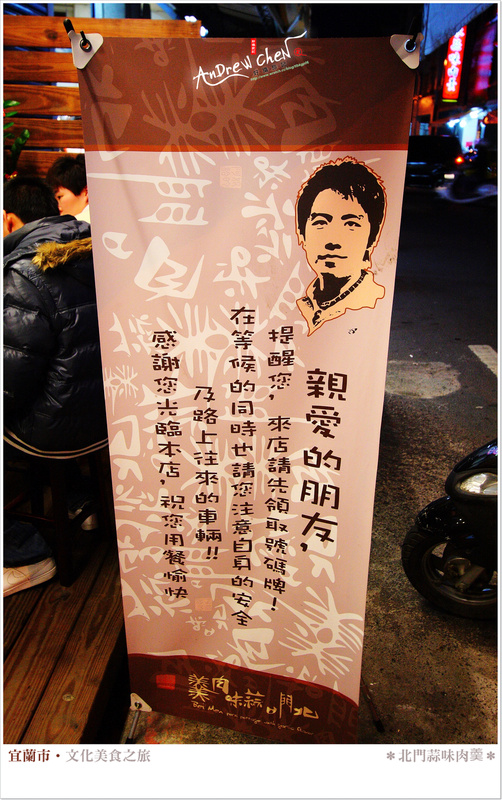 AnDrew CheN
親愛的朋友,
提醒您, 來店請先領取號碼牌!
在等候的同時也請您注意自身的安全
及路上往來的車輛!!
感謝您光臨本店, 祝您用餐愉快
北門蒜味肉羹
宜蘭市・文化美食之旅
*北門蒜味肉羹*